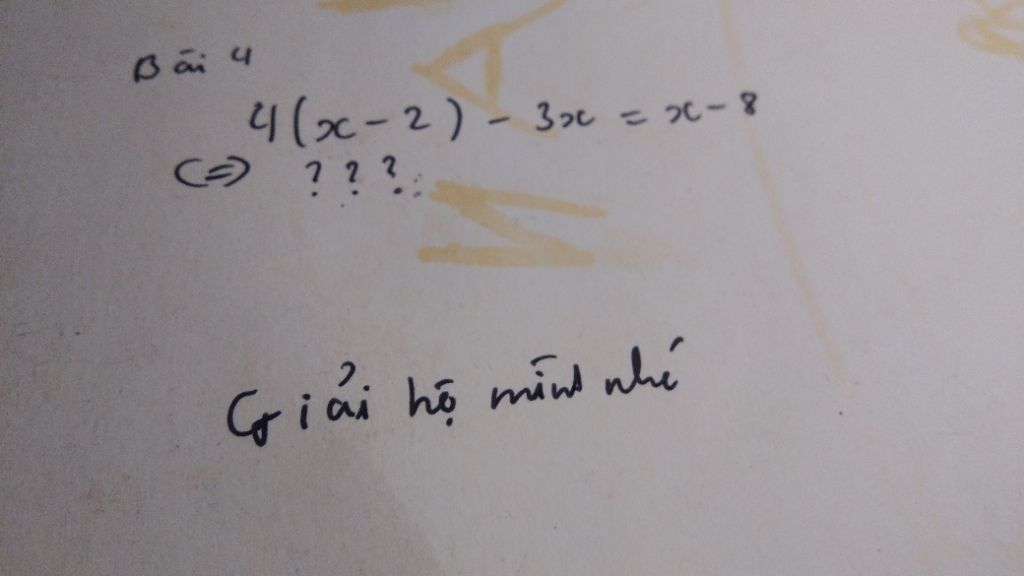 Bài 4
4(x-2) - 3x = x-8
<=> ? ? ?
Giải hộ mình nhé